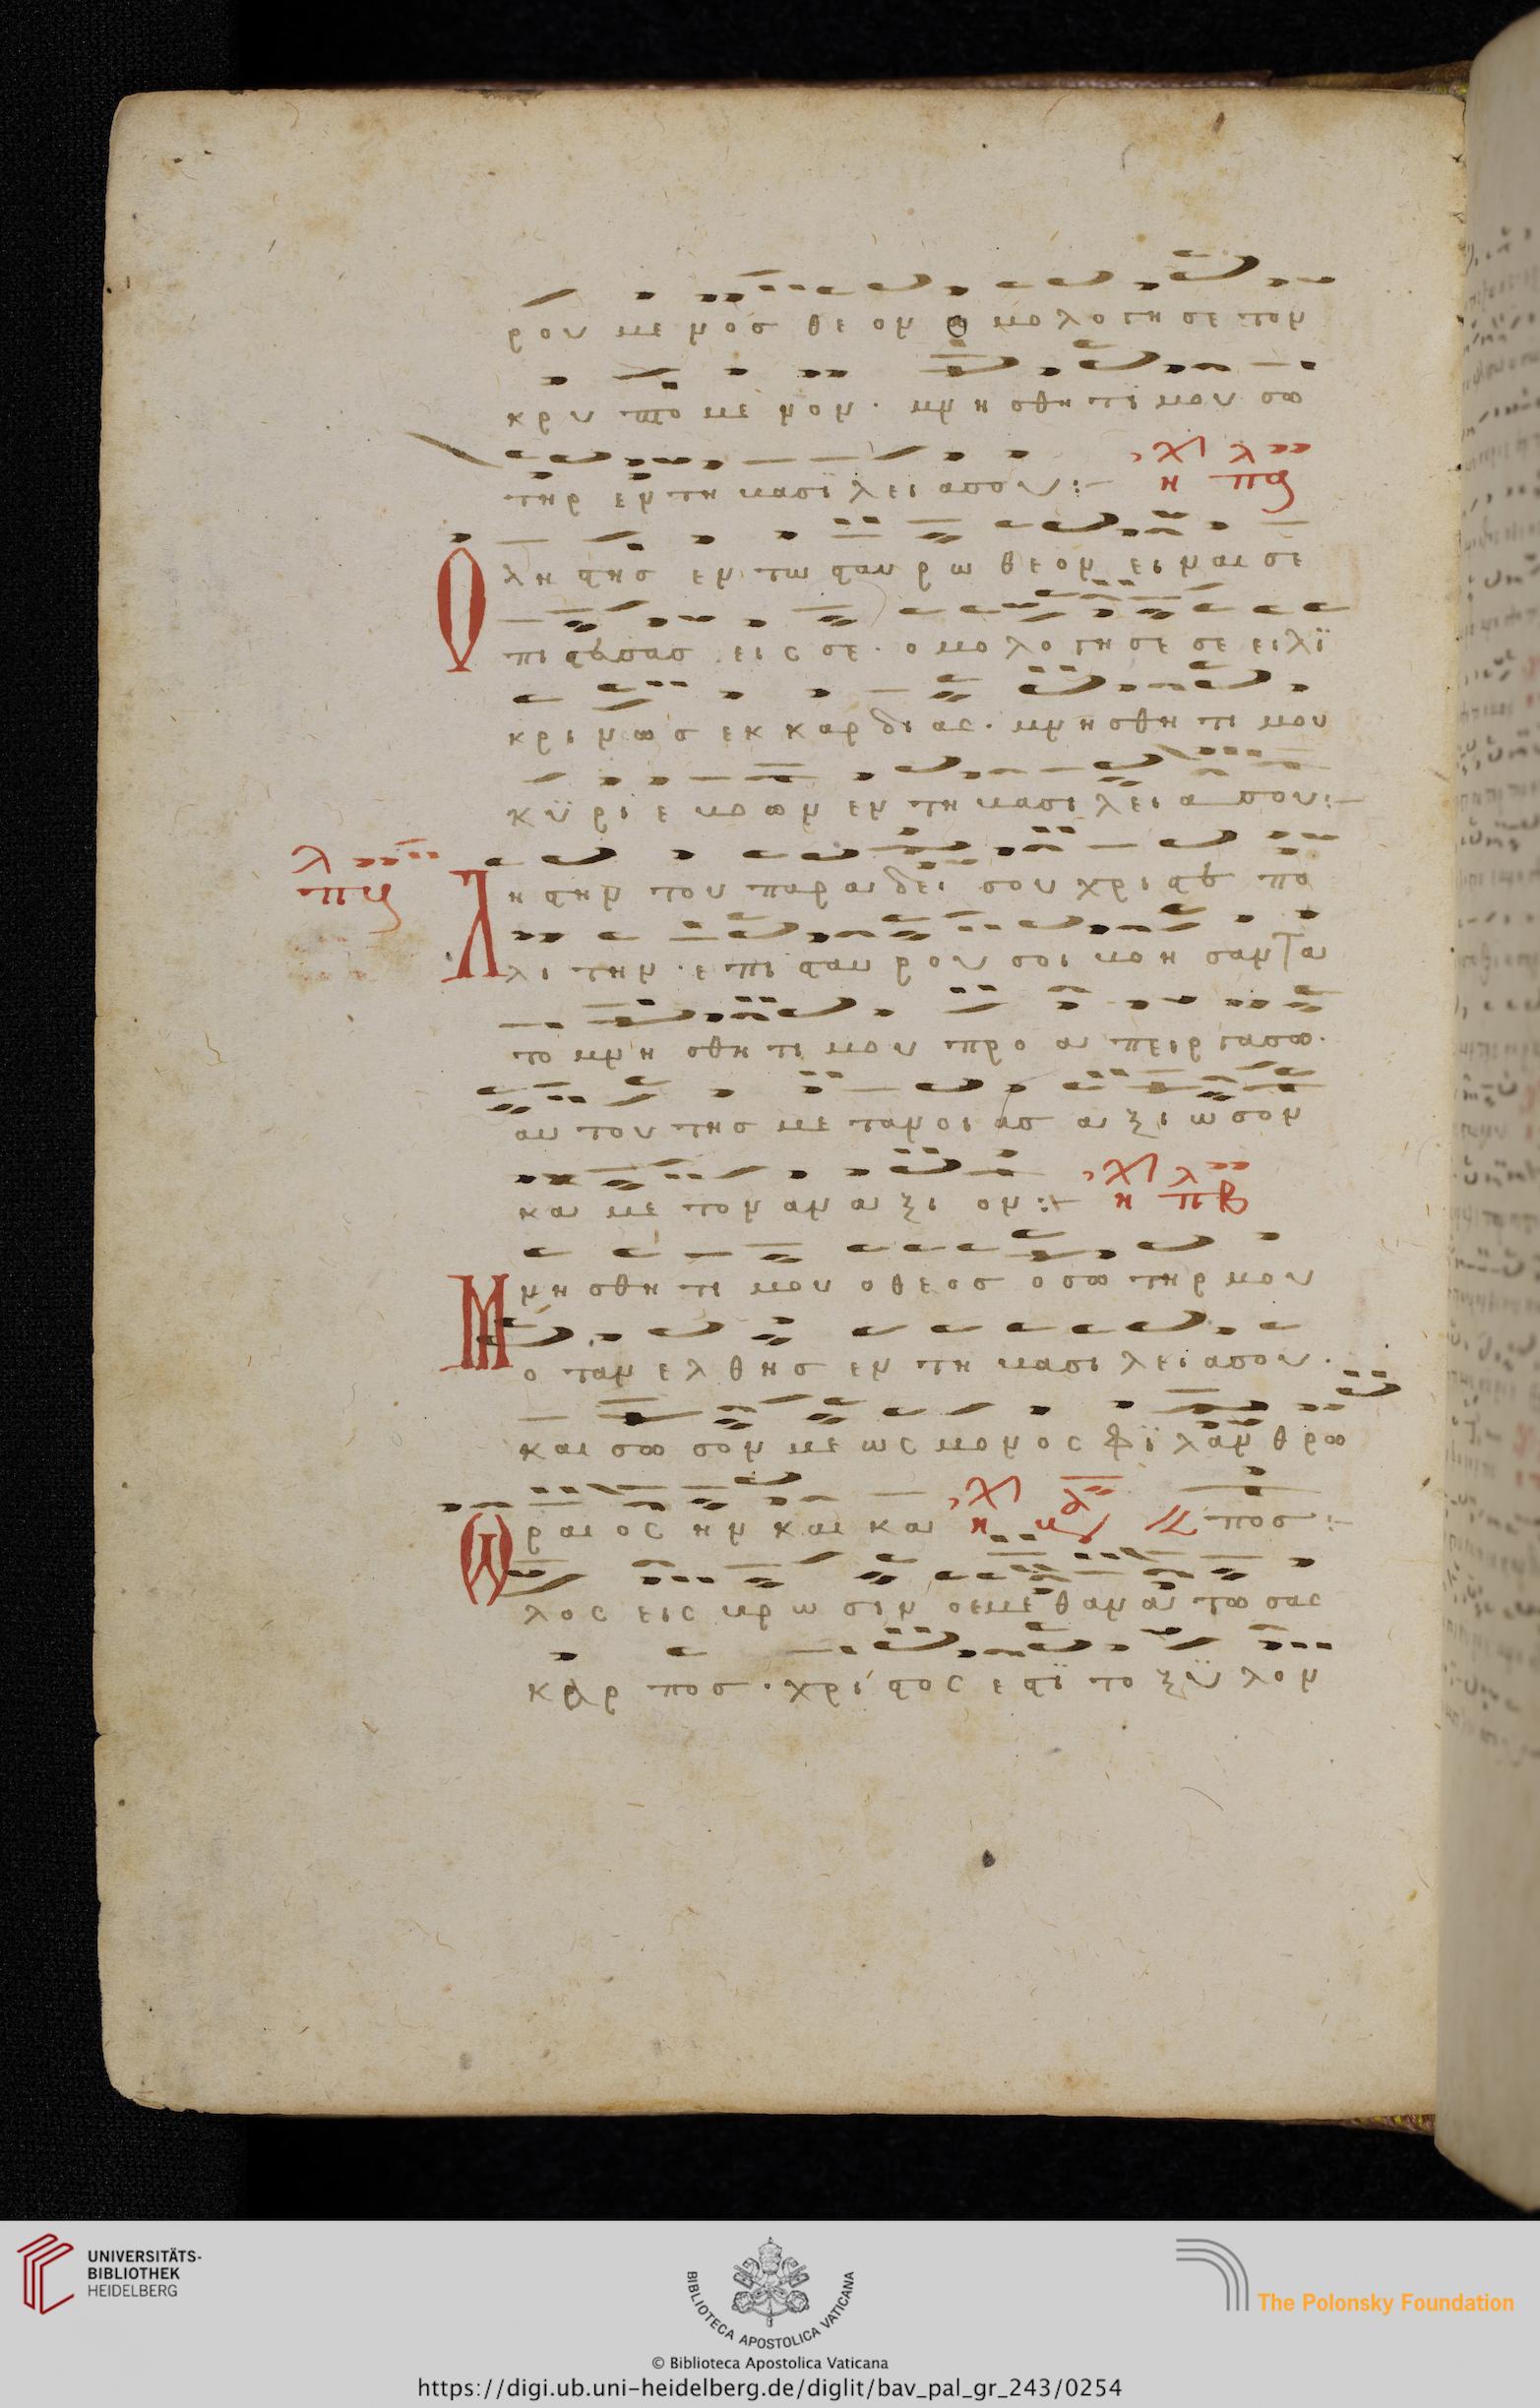 ρου με νοσ θε ον ο μο λο γη σε τον
κρυ πτο με νον · μνη σθη τι μου σω
τηρ εν τη βασϊ λει α σου :–
η πδ
λη στησ εν τω σταυ ρω θεον ει ναι σε
πι στευσασ εις σε · ο μο λο γη σε σε ειλϊ
κρι νωσ εκ καρ δι ας · μνη σθη τι μου
κϋ ρι ε βο ων εν τη βασι λει α σου :–
Λ η στην του παρ αι δει σου χρι στε πο
λι την · ε πι σταυ ρου σοι βο η σαντα
το μνη σθη τι μου προ αι πειργασω ·
αυ του τησ με τανοι ασ αι ξι ωσον
και με τον αν αι ξι ον :+
η πβ
Μ νη σθη τι μου ο θεοσ ο σω τηρ μου
ο ταν ελ θησ εν τη βασι λει α σου ·
και σω σον με ως μονος φϊ λαν θρω
πος :–
Ω ραι ος ην και κα
λος εις βρω σιν ο εμε θαν αι τω σας
καρ ποσ · χρι στος εστϊ το ξϋ λον
UNIVERSITÄTS-
BIBLIOTHEK
HEIDELBERG
BIBLIOTECA APOSTOLICA VATICANA
The Polonsky Foundation
© Biblioteca Apostolica Vaticana
https://digi.ub.uni-heidelberg.de/diglit/bav_pal_gr_243/0254